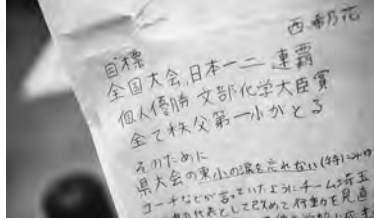 西 朝花
目標
全国大会、日本一二連覇
個人優勝 文部化学大臣賞
全て秩父第一小がとる
そのために
県大会の東小の涙を忘れない(特に
コーチなどが言っていたようにチーム埼玉
代表として改めて行動を見直